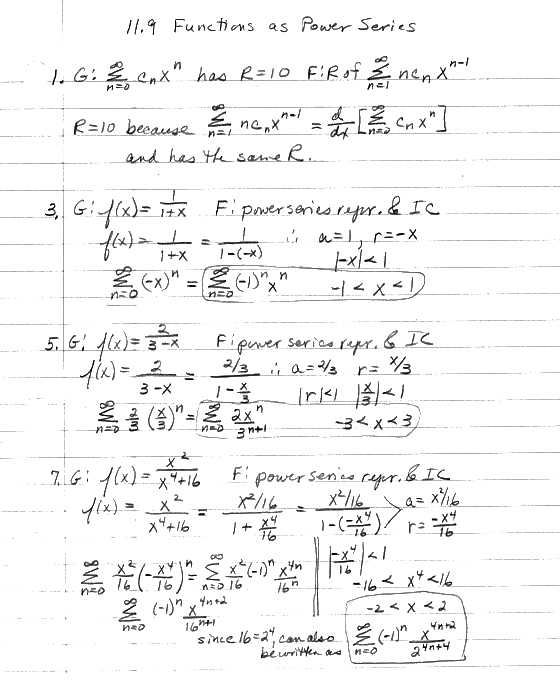 11.9 Functions as Power Series
1. G: ∑_{n=0}^{∞} c_n x^n has R=10 F: R of ∑_{n=1}^{∞} n c_n x^{n-1}
R=10 because ∑_{n=1}^{∞} n c_n x^{n-1} = d/dx [∑_{n=0}^{∞} c_n x^n]
and has the same R.
3. G: f(x) = 1/(1+x) F: power series repr. & IC
f(x) = 1/(1+x) = 1/(1-(-x)) ∴ a=1, r=-x
|-x|<1
∑_{n=0}^{∞} (-x)^n = ∑_{n=0}^{∞} (-1)^n x^n -1 < x < 1
5. G: f(x) = 2/(3-x) F: power series repr. & IC
f(x) = 2/(3-x) = (2/3)/(1 - x/3) ∴ a=2/3 r=x/3
|r|<1 |x/3|<1
∑_{n=0}^{∞} 2/3 (x/3)^n = ∑_{n=0}^{∞} 2x^n/3^{n+1} -3 < x < 3
7. G: f(x) = x^2/(x^4+16) F: power series repr. & IC
f(x) = x^2/(x^4+16) = (x^2/16)/(1 + x^4/16) = (x^2/16)/(1-(-x^4/16)) a = x^2/16
r = -x^4/16
∑_{n=0}^{∞} x^2/16 (-x^4/16)^n = ∑_{n=0}^{∞} x^2/16 (-1)^n x^{4n}/16^n |-x^4/16| < 1
-16 < x^4 < 16
∑_{n=0}^{∞} (-1)^n x^{4n+2}/16^{n+1} -2 < x < 2
since 16=2^4, can also
be written as ∑_{n=0}^{∞} (-1)^n x^{4n+2}/2^{4n+4}